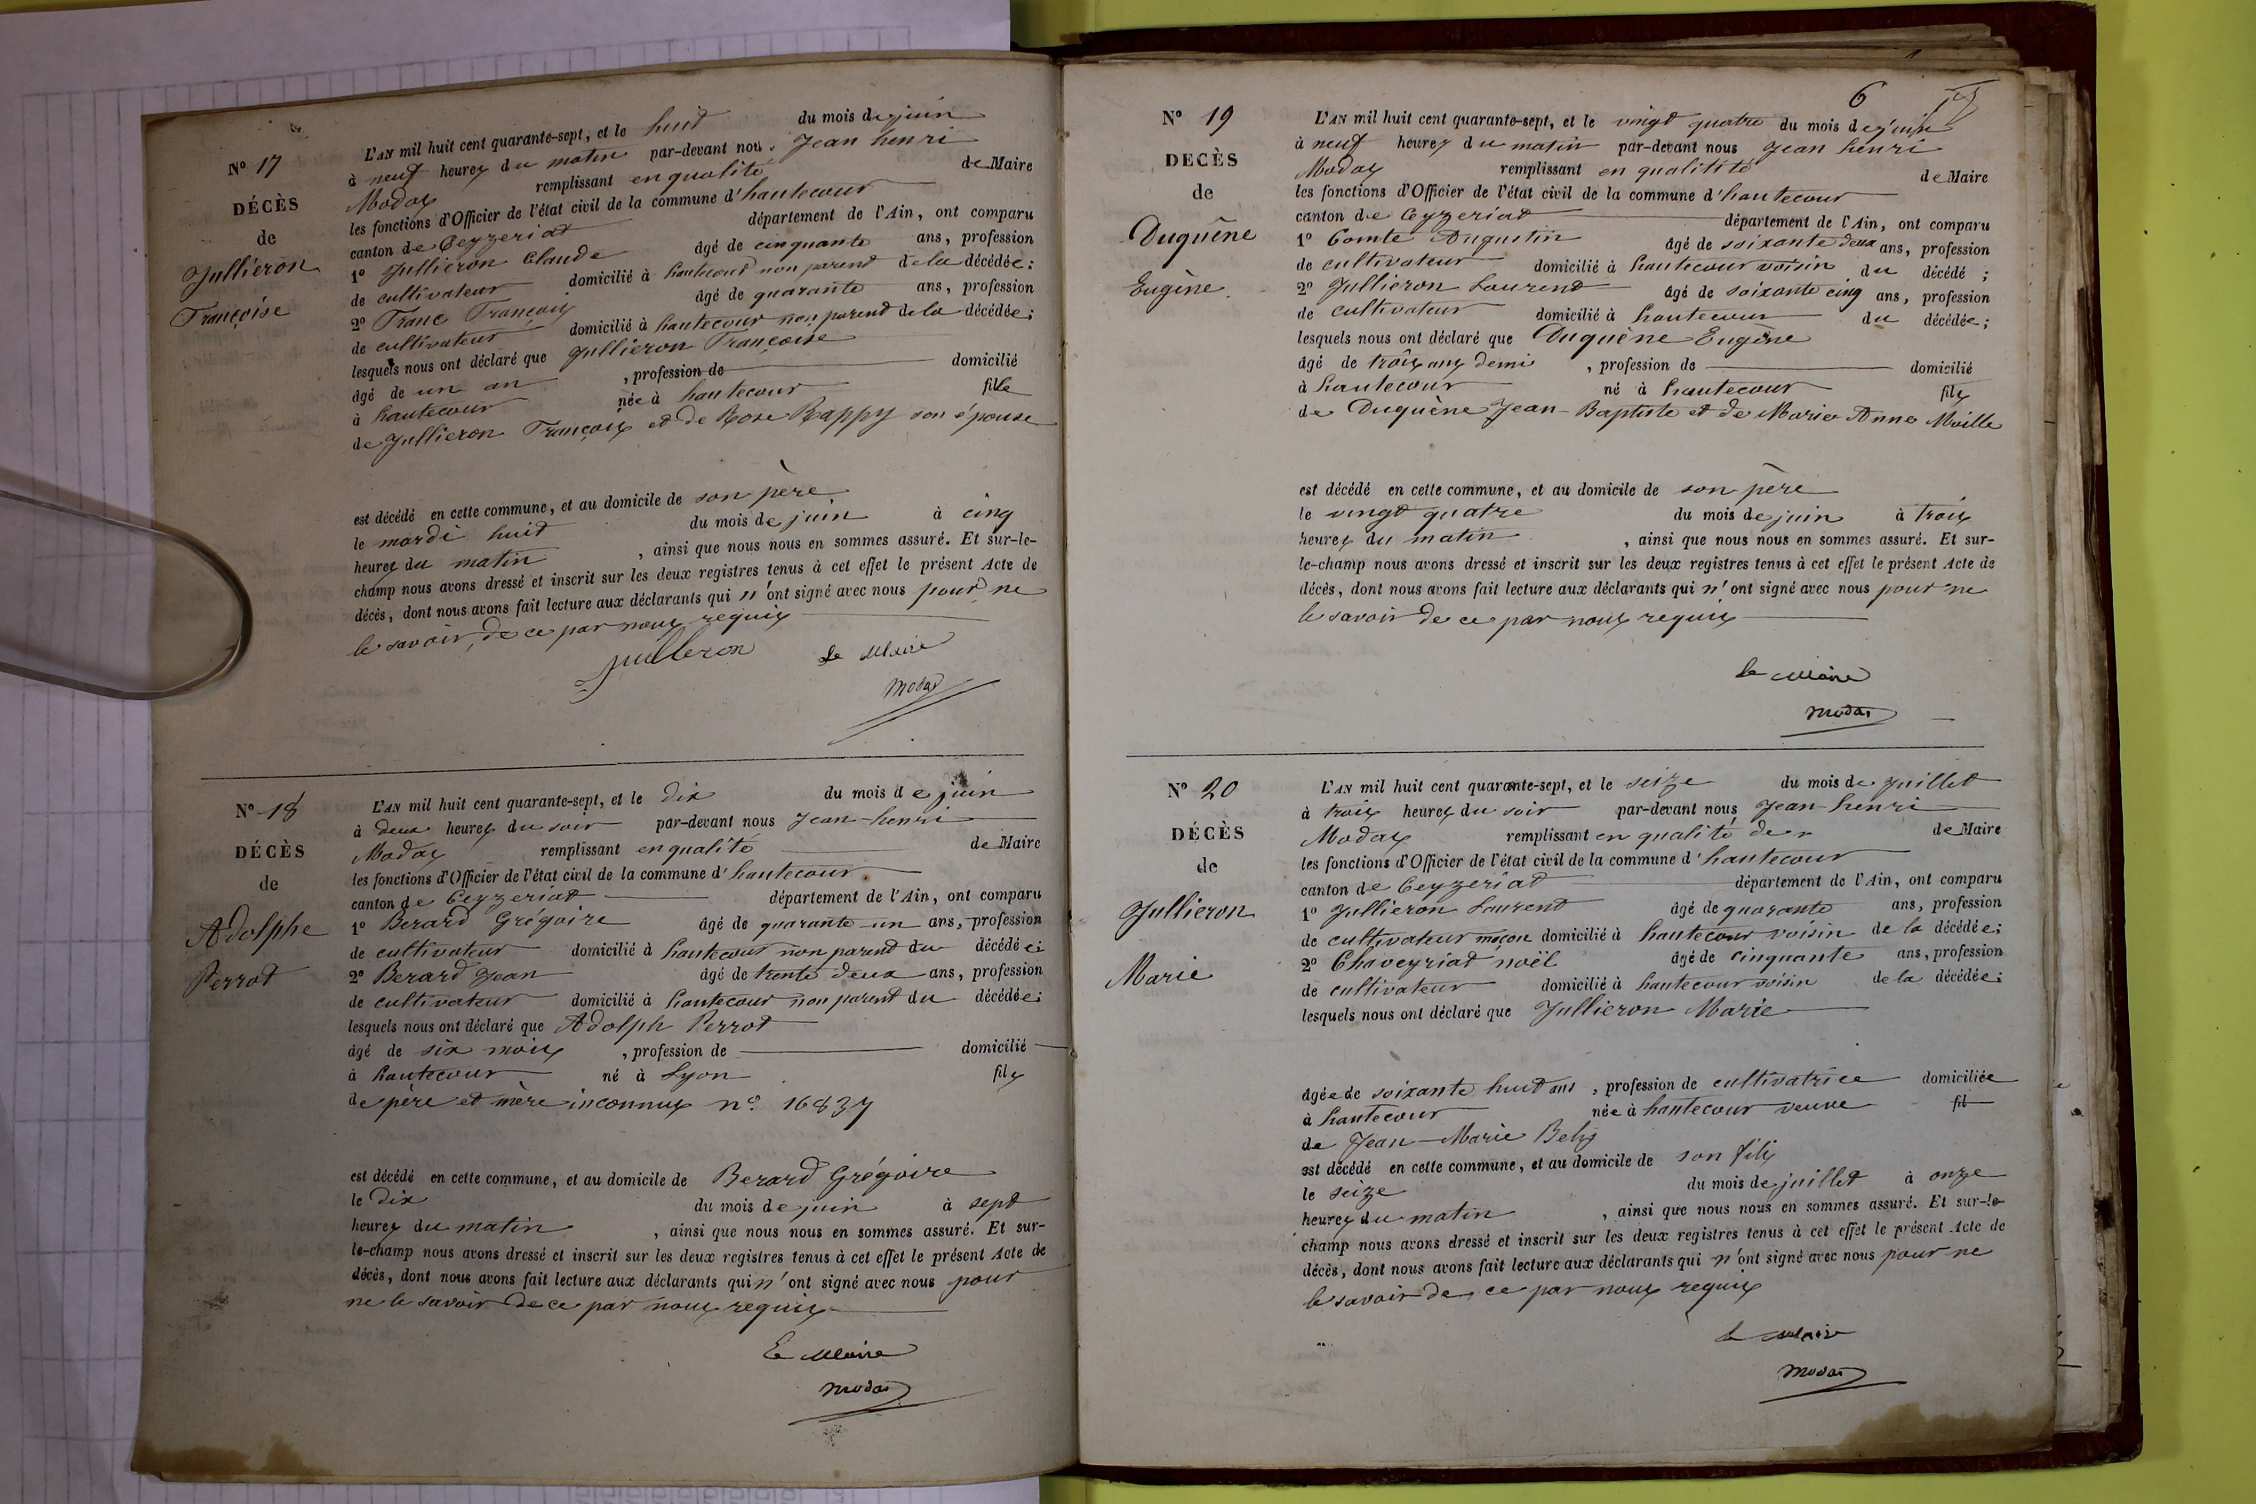 N° 17
DÉCÈS
de
Jullieron
Françoise
L'AN mil huit cent quarante-sept, et le huit du mois de juin
à neuf heures du matin par-devant nous Jean henri
Modas remplissant en qualité de Maire
les fonctions d'Officier de l'état civil de la commune d'hautecour
canton de Ceyzeriat département de l'Ain, ont comparu
1° Jullieron Claude âgé de cinquante ans, profession
de cultivateur domicilié à hautecour non parend de la décédée;
2° Franc François âgé de quarante ans, profession
de cultivateur domicilié à hautecour non parend de la décédée;
lesquels nous ont déclaré que Jullieron Françoise
âgé de un an , profession de domicilié
à hautecour née à hautecour fille
de Jullieron François et de Rose Rappy son épouse
est décédé en cette commune, et au domicile de son père
le mardi huit du mois de juin à cinq
heures du matin , ainsi que nous nous en sommes assuré. Et sur-le-
champ nous avons dressé et inscrit sur les deux registres tenus à cet effet le présent Acte de
décès, dont nous avons fait lecture aux déclarants qui n'ont signé avec nous pour ne
le savoir, de ce par nous requis
Juilleron Le Maire
Modas
N° 18
DÉCÈS
de
Adolphe
Perrot
L'AN mil huit cent quarante-sept, et le dix du mois de juin
à deux heures du soir par-devant nous Jean-henri
Modas remplissant en qualité de Maire
les fonctions d'Officier de l'état civil de la commune d'hautecour
canton de Ceyzeriat département de l'Ain, ont comparu
1° Berard Grégoire âgé de quarante-un ans, profession
de cultivateur domicilié à hautecour non parend du décédée;
2° Berard Jean âgé de trente deux ans, profession
de cultivateur domicilié à hautecour non parent du décédée;
lesquels nous ont déclaré que Adolph Perrot
âgé de six mois , profession de domicilié
à hautecour né à Lyon fils
de père et mère inconnus n°. 16837
est décédé en cette commune, et au domicile de Berard Grégoire
le dix du mois de juin à sept
heures du matin , ainsi que nous nous en sommes assuré. Et sur-
le-champ nous avons dressé et inscrit sur les deux registres tenus à cet effet le présent Acte de
décès, dont nous avons fait lecture aux déclarants qui n'ont signé avec nous pour
ne le savoir de ce par nous requis
Le Maire
Modas
6
N° 19
DECÈS
de
Duquêne
Eugène
L'AN mil huit cent quarante-sept, et le vingt quatre du mois de juin
à neuf heures du matin par-devant nous Jean henri
Modas remplissant en qualitité de Maire
les fonctions d'Officier de l'état civil de la commune d'hautecour
canton de Ceyzeriat département de l'Ain, ont comparu
1° Comte Augustin âgé de soixante deux ans, profession
de cultivateur domicilié à hautecour voisin du décédé ;
2° Jullieron Laurend âgé de soixante cinq ans, profession
de cultivateur domicilié à hautecour du décédée;
lesquels nous ont déclaré que Duquène Eugène
âgé de trois ans demi , profession de domicilié
à hautecour né à hautecour fils
de Duquène Jean-Baptiste et de Marie Anne Moille
est décédé en cette commune, et au domicile de son père
le vingt quatre du mois de juin à trois
heures du matin , ainsi que nous nous en sommes assuré. Et sur-
le-champ nous avons dressé et inscrit sur les deux registres tenus à cet effet le présent Acte de
décès, dont nous avons fait lecture aux déclarants qui n'ont signé avec nous pour ne
le savoir de ce par nous requis
le Maire
Modas
N° 20
DÉCÈS
de
Jullieron
Marie
L'AN mil huit cent quarante-sept, et le seize du mois de juillet
à trois heures du soir par-devant nous Jean henri
Modas remplissant en qualité de de Maire
les fonctions d'Officier de l'état civil de la commune d'hautecour
canton de Ceyzeriat département de l'Ain, ont comparu
1° Jullieron Laurent âgé de quarante ans, profession
de cultivateur maçon domicilié à hautecour voisin de la décédée;
2° Chaveyriat noël âgé de cinquante ans, profession
de cultivateur domicilié à hautecour voisin de la décédée;
lesquels nous ont déclaré que Jullieron Marie
âgée de soixante huit ans , profession de cultivatrice domiciliée
à hautecour née à hautecour veuve fil
de Jean-Marie Bely
est décédé en cette commune, et au domicile de son fils
le seize du mois de juillet à onze
heures du matin , ainsi que nous nous en sommes assuré. Et sur-le-
champ nous avons dressé et inscrit sur les deux registres tenus à cet effet le présent Acte de
décès, dont nous avons fait lecture aux déclarants qui n'ont signé avec nous pour ne
le savoir de ce par nous requis
le Maire
Modas